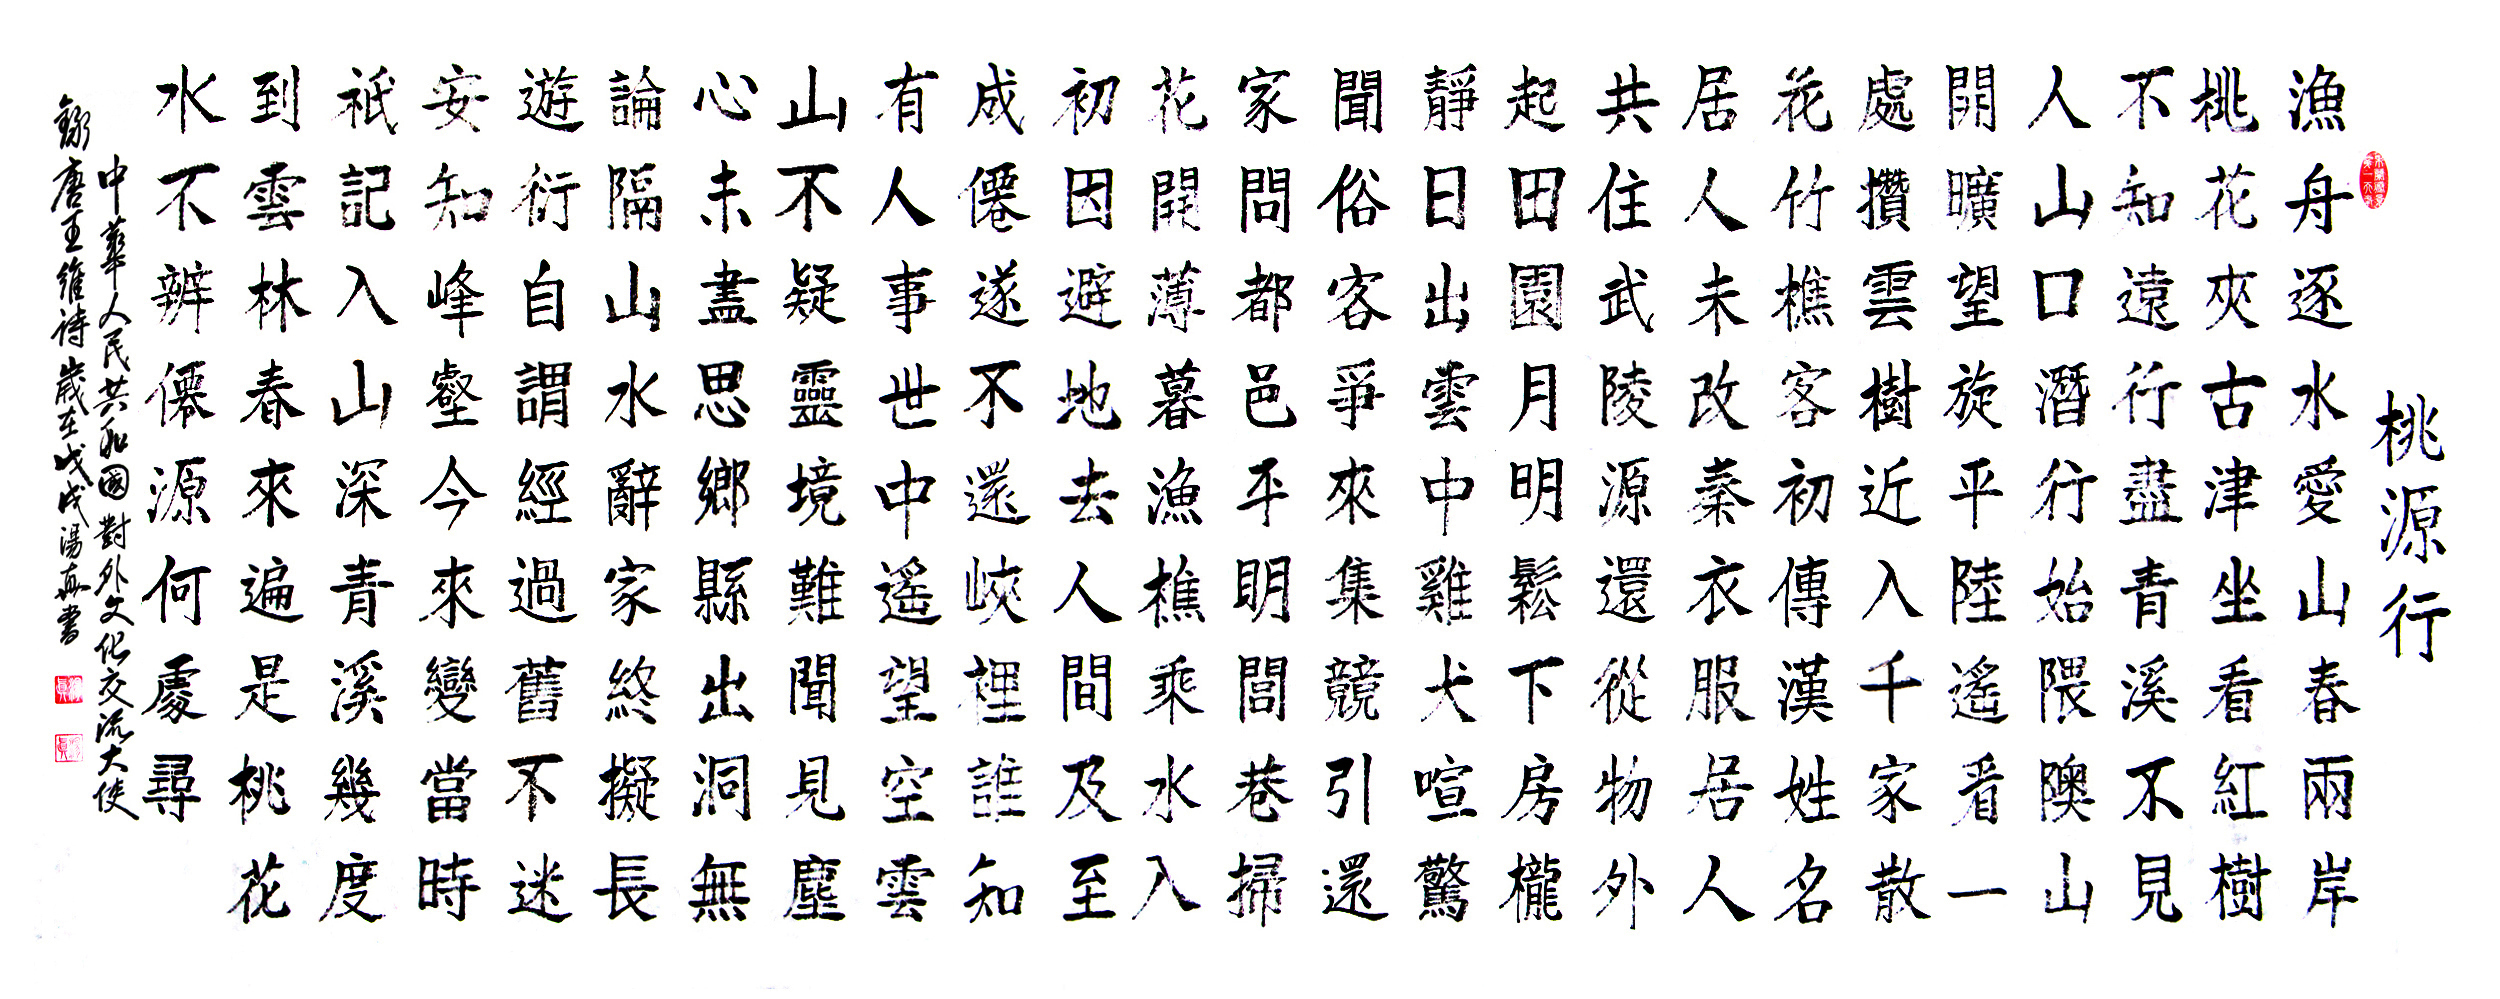 桃源行
漁舟逐水愛山春兩岸
桃花夾古津坐看紅樹
不知遠行盡青溪不見
人山口潛行始隈隩山
開曠望旋平陸遙看一
處攢雲樹近入千家散
花竹樵客初傳漢姓名
居人未改秦衣服居人
共住武陵源還從物外
起田園月明鬆下房櫳
靜日出雲中雞犬喧驚
聞俗客爭來集競引還
家問都邑平明閭巷掃
花開薄暮漁樵乘水入
初因避地去人間及至
成僊遂不還峽裡誰知
有人事世中遙望空雲
山不疑靈境難聞見塵
心未盡思鄉縣出洞無
論隔山水辭家終擬長
遊衍自謂經過舊不迷
安知峰壑今來變當時
祇記入山深青溪幾度
到雲林春來遍是桃花
水不辨僊源何處尋
中華人民共和國對外文化交流大使
錄唐王維詩歲在戊戌湯真書